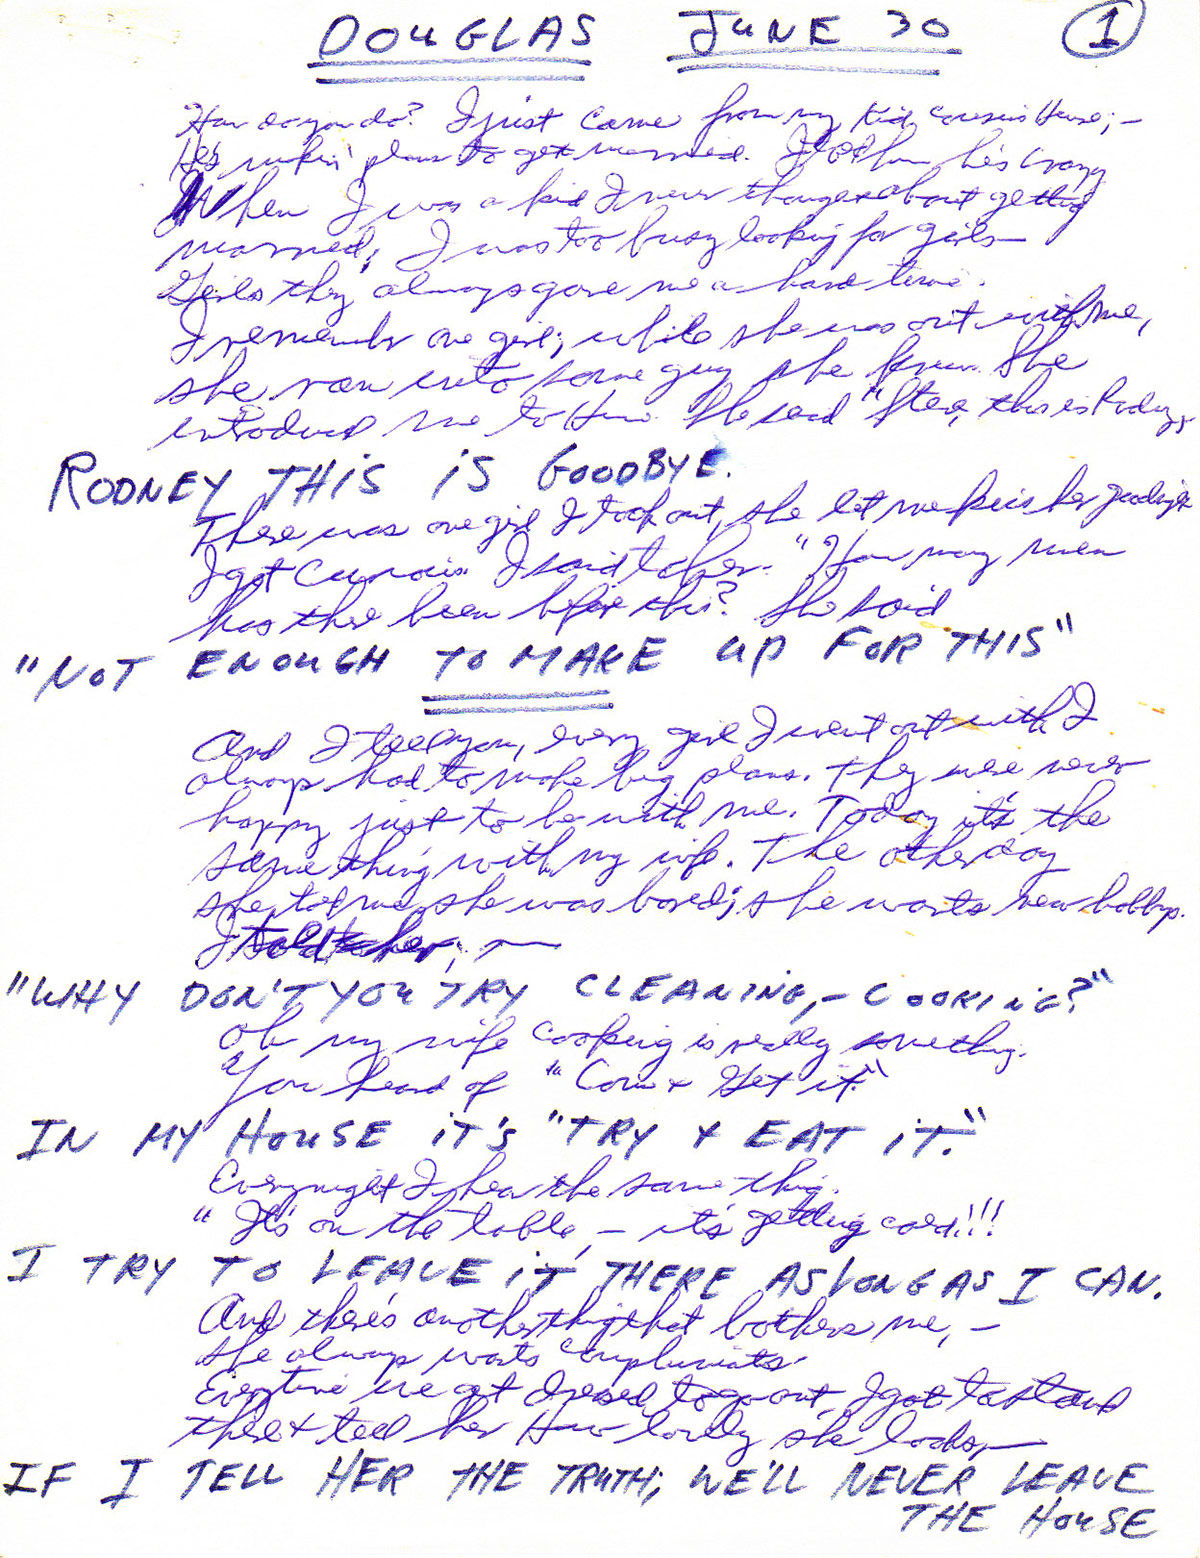 DOUGLAS JUNE 30 1
How do you do? I just came from my kid cousins House; –
He's makin' plans to get married. I told him he's crazy
When I was a kid I never thought about getting
married, I was too busy looking for girls –
Girls they always gave me a hard time.
I remember one girl; while she was out with me,
she ran into some guy she knew. She
introduced me to Him. She said "Steve, this is Rodney,
RODNEY THIS IS GOODBYE.
There was one girl I took out, she let me kiss her goodnight
I got curious. I said to her. "How many men
has there been before this? She said
"NOT ENOUGH TO MAKE UP FOR THIS"
And I tell you, every girl I went out with I
always had to make big plans. They were never
happy just to be with me. Today it's the
same thing with my wife. The other day
she told me she was bored; she wants new hobbys.
I told her; –
"WHY DON'T YOU TRY CLEANING, – COOKING?"
Oh my wife cooking is really something.
You heard of "Come & Get it."
IN MY HOUSE it's "TRY & EAT iT."
Every night I hear the same thing.
"It's on the table, – it's getting cold!!!
I TRY TO LEAVE iT THERE AS LONG AS I CAN.
And there's another thing that bothers me, –
She always wants compliments.
Everytime we get dressed to go out, I got to stand
there & tell her How lovely she looks, –
IF I TELL HER THE TRUTH; WE'LL NEVER LEAVE
THE HOUSE